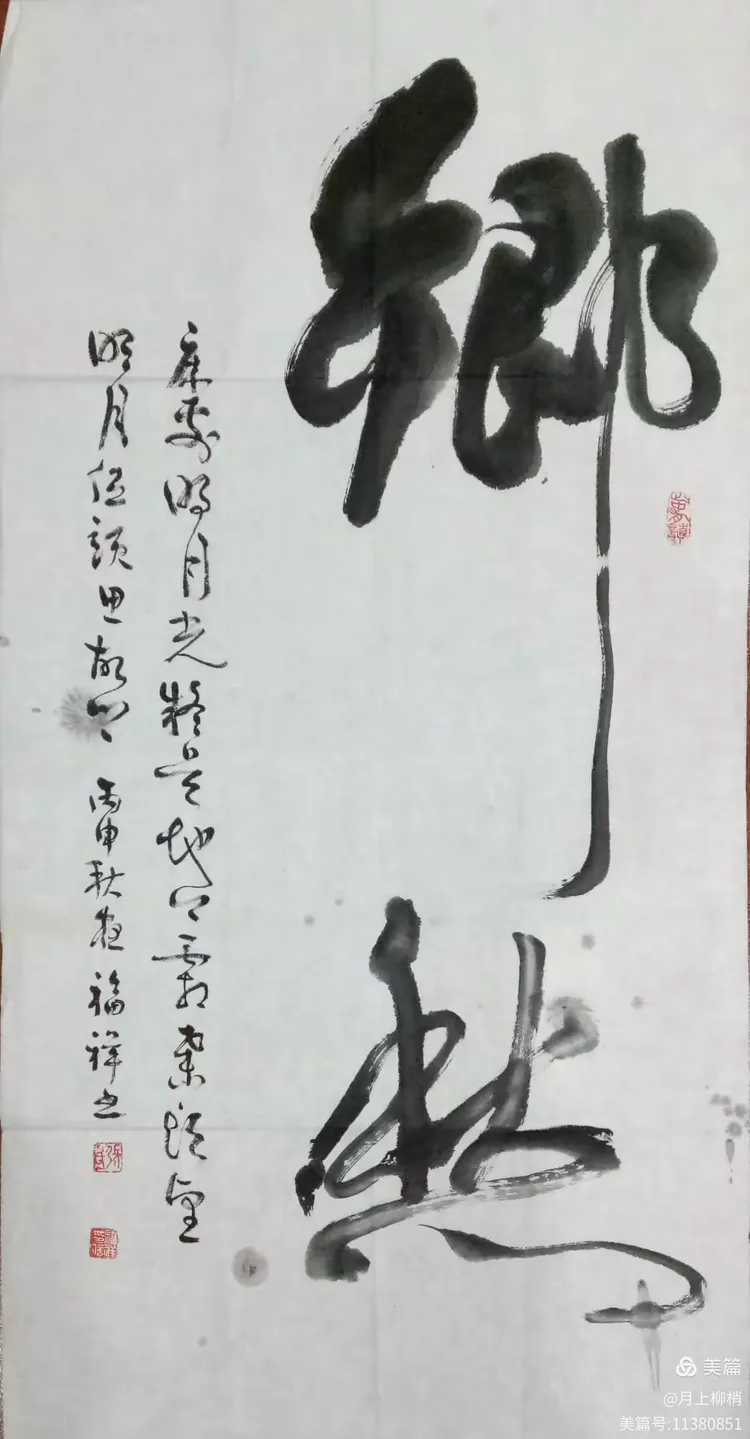 鄉愁
床前明月光疑是地上霜举頭望
明月低頭思故鄉 丙申秋夜 福祥书
美篇
@月上柳梢
美篇号:11380851